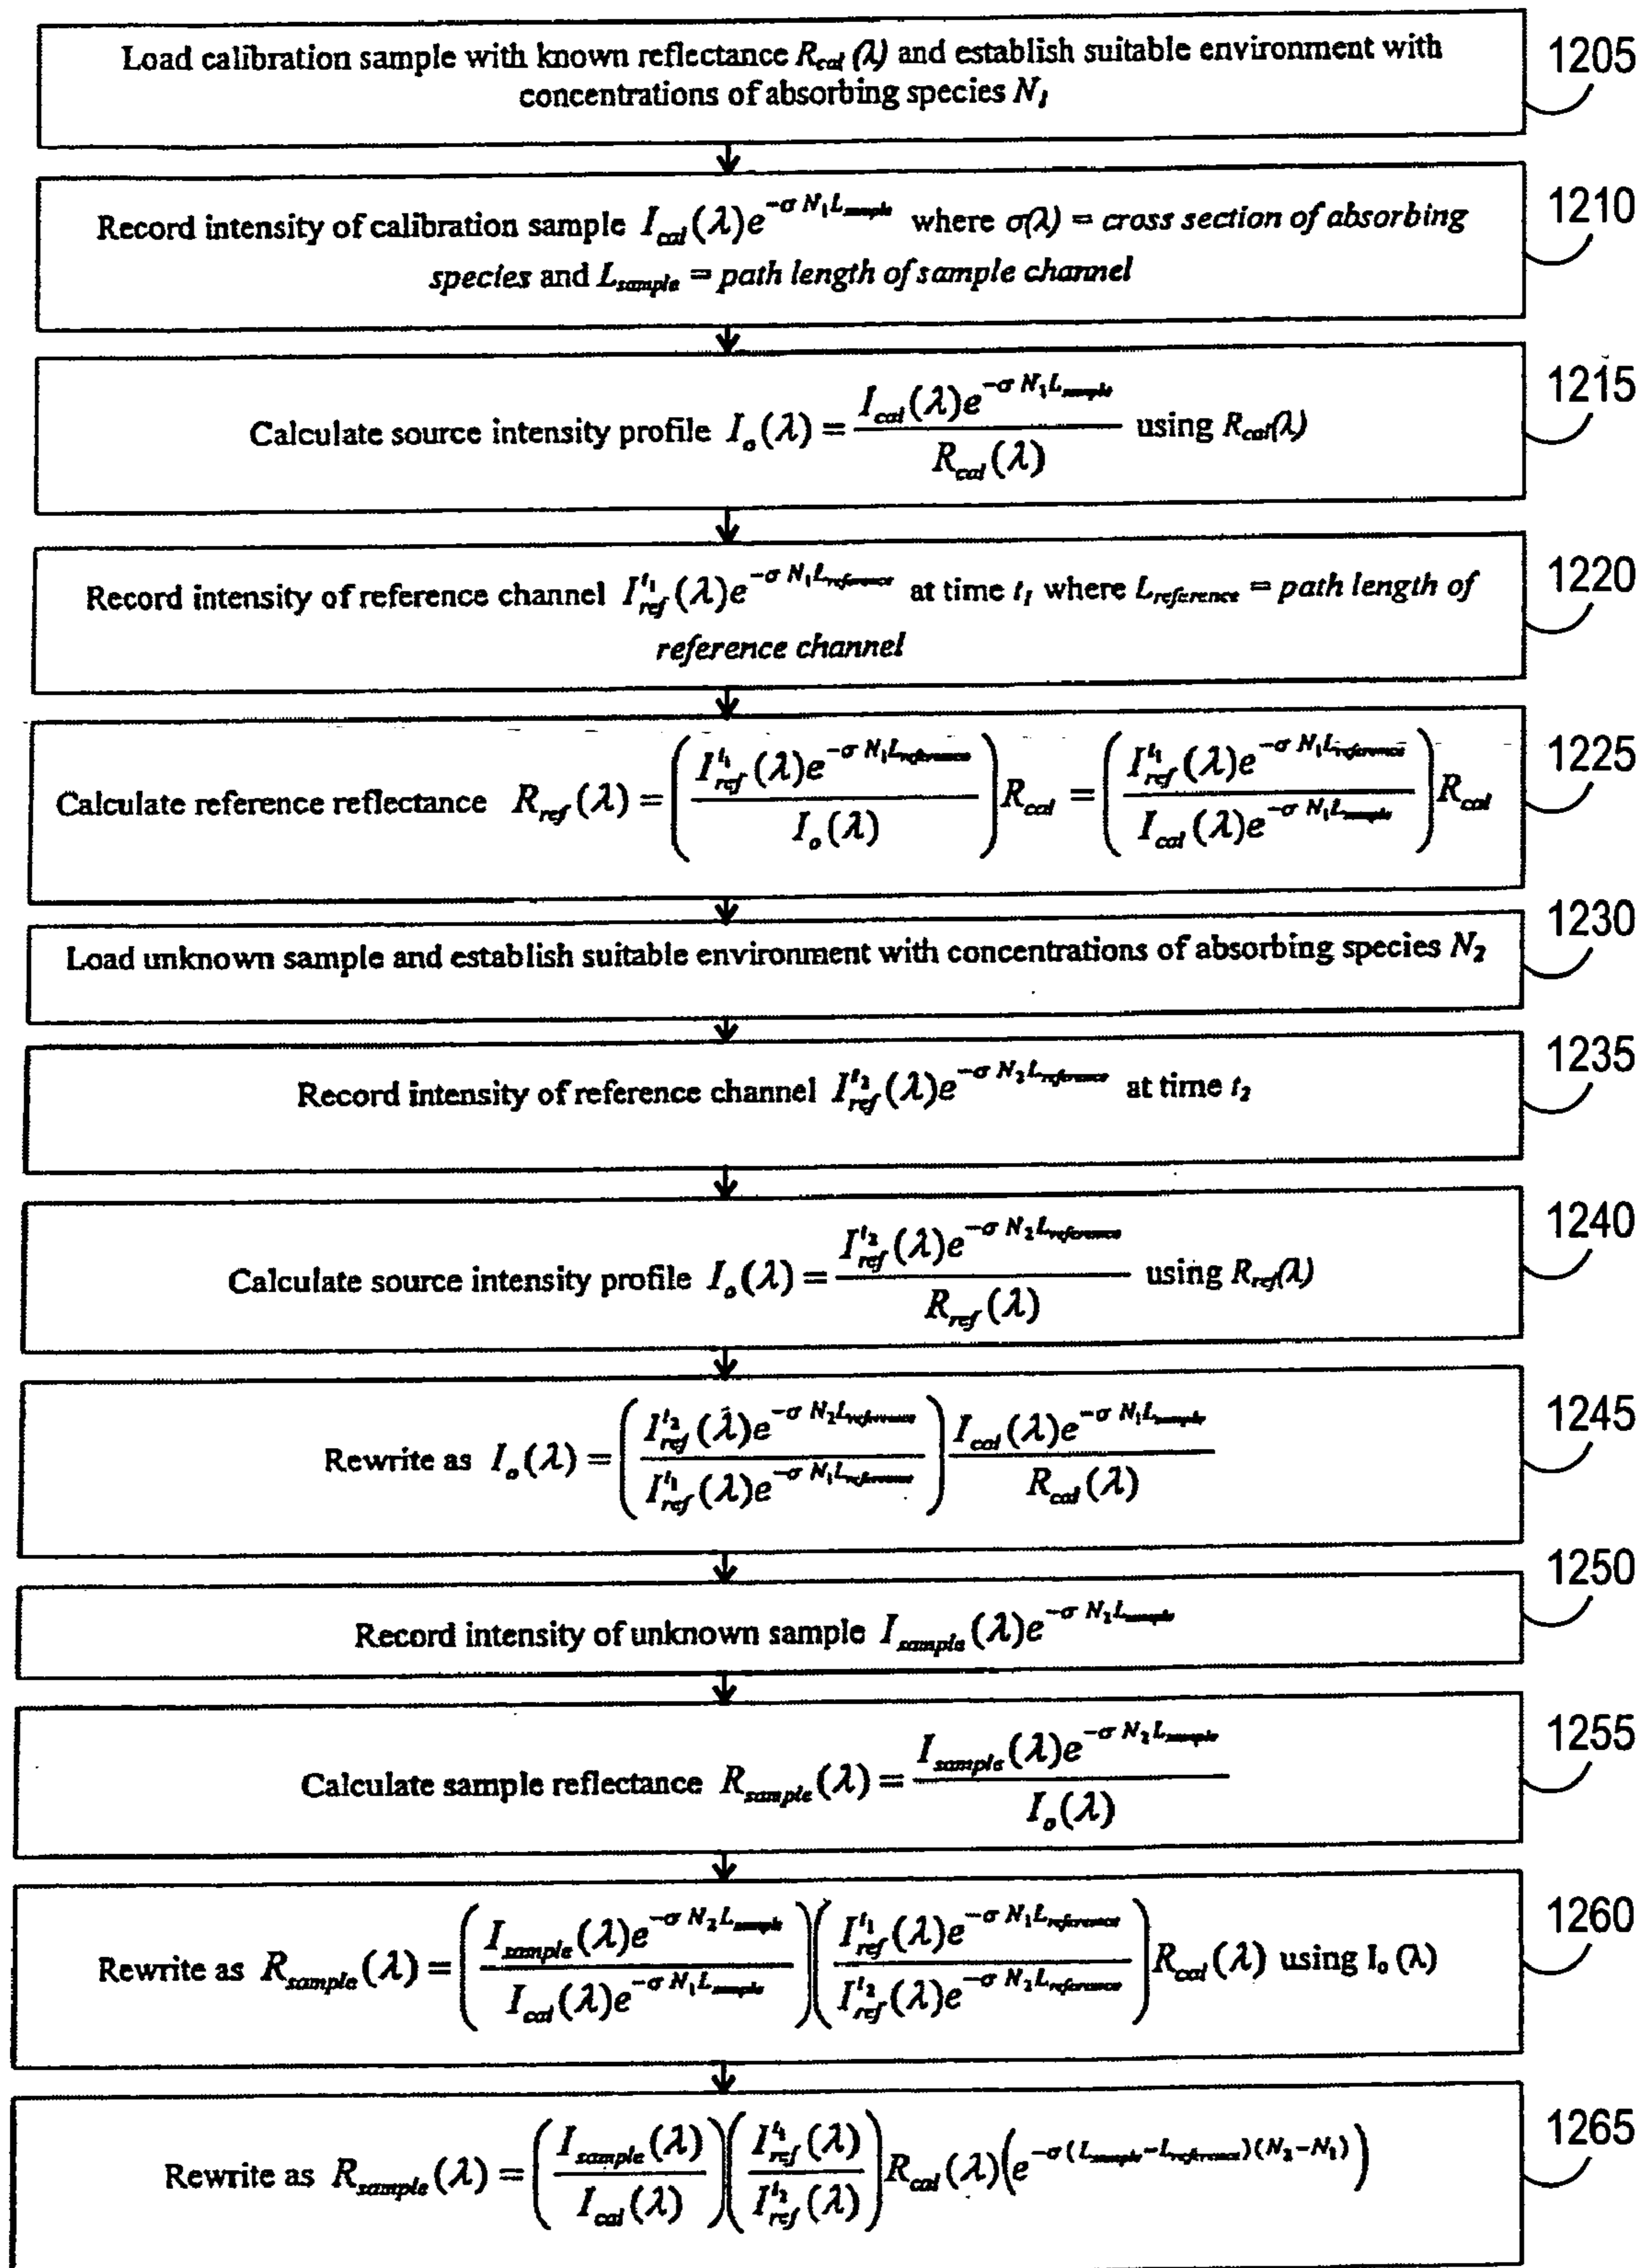 Load calibration sample with known reflectance R_cal (λ) and establish suitable environment with
concentrations of absorbing species N_1
1205
Record intensity of calibration sample I_cal(λ)e^{-σ N_1 L_sample} where σ(λ) = cross section of absorbing
species and L_sample = path length of sample channel
1210
Calculate source intensity profile I_o(λ) = \frac{I_cal(λ)e^{-σ N_1 L_sample}}{R_cal(λ)} using R_cal(λ)
1215
Record intensity of reference channel I_ref^{t_1}(λ)e^{-σ N_1 L_reference} at time t_1 where L_reference = path length of
reference channel
1220
Calculate reference reflectance R_ref(λ) = \left(\frac{I_ref^{t_1}(λ)e^{-σ N_1 L_reference}}{I_o(λ)}\right) R_cal = \left(\frac{I_ref^{t_1}(λ)e^{-σ N_1 L_reference}}{I_cal(λ)e^{-σ N_1 L_sample}}\right) R_cal
1225
Load unknown sample and establish suitable environment with concentrations of absorbing species N_2
1230
Record intensity of reference channel I_ref^{t_2}(λ)e^{-σ N_2 L_reference} at time t_2
1235
Calculate source intensity profile I_o(λ) = \frac{I_ref^{t_2}(λ)e^{-σ N_2 L_reference}}{R_ref(λ)} using R_ref(λ)
1240
Rewrite as I_o(λ) = \left(\frac{I_ref^{t_2}(λ)e^{-σ N_2 L_reference}}{I_ref^{t_1}(λ)e^{-σ N_1 L_reference}}\right) \frac{I_cal(λ)e^{-σ N_1 L_sample}}{R_cal(λ)}
1245
Record intensity of unknown sample I_sample(λ)e^{-σ N_2 L_sample}
1250
Calculate sample reflectance R_sample(λ) = \frac{I_sample(λ)e^{-σ N_2 L_sample}}{I_o(λ)}
1255
Rewrite as R_sample(λ) = \left(\frac{I_sample(λ)e^{-σ N_2 L_sample}}{I_cal(λ)e^{-σ N_1 L_sample}}\right)\left(\frac{I_ref^{t_1}(λ)e^{-σ N_1 L_reference}}{I_ref^{t_2}(λ)e^{-σ N_2 L_reference}}\right) R_cal(λ) using I_o (λ)
1260
Rewrite as R_sample(λ) = \left(\frac{I_sample(λ)}{I_cal(λ)}\right)\left(\frac{I_ref^{t_1}(λ)}{I_ref^{t_2}(λ)}\right) R_cal(λ)\left(e^{-σ(L_sample-L_reference)(N_2-N_1)}\right)
1265